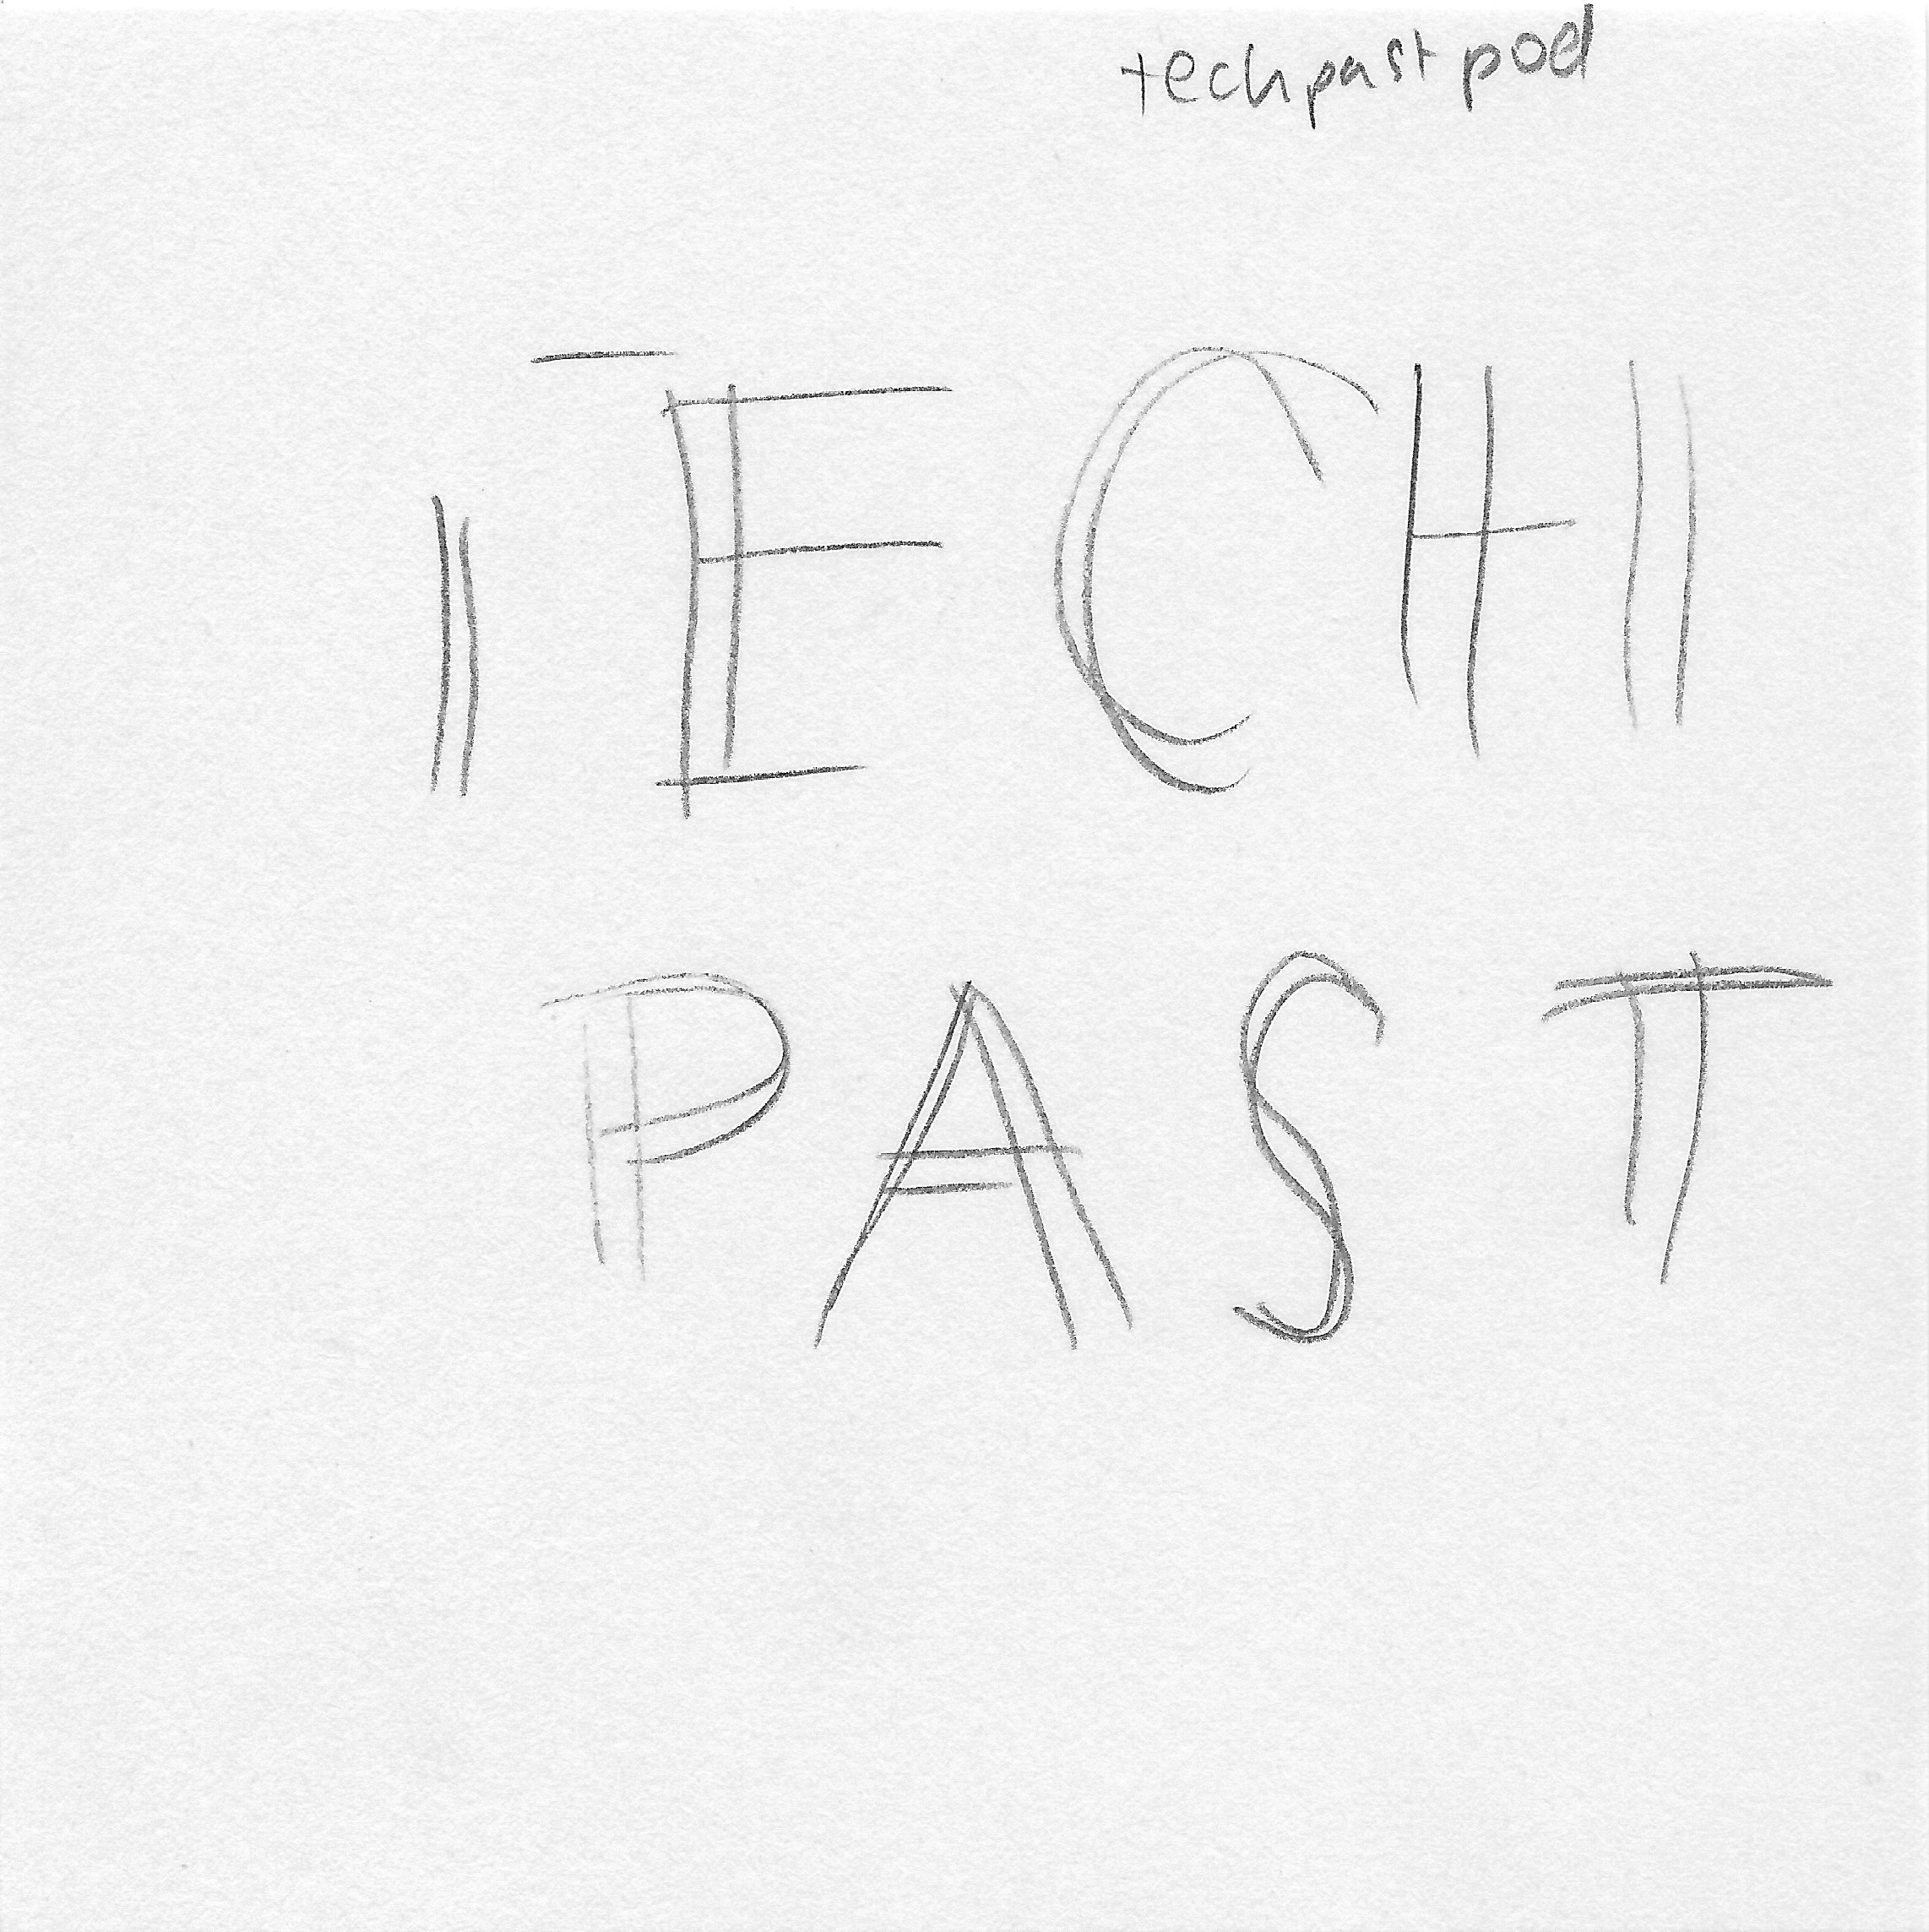 techpastpod
TECH
PAST